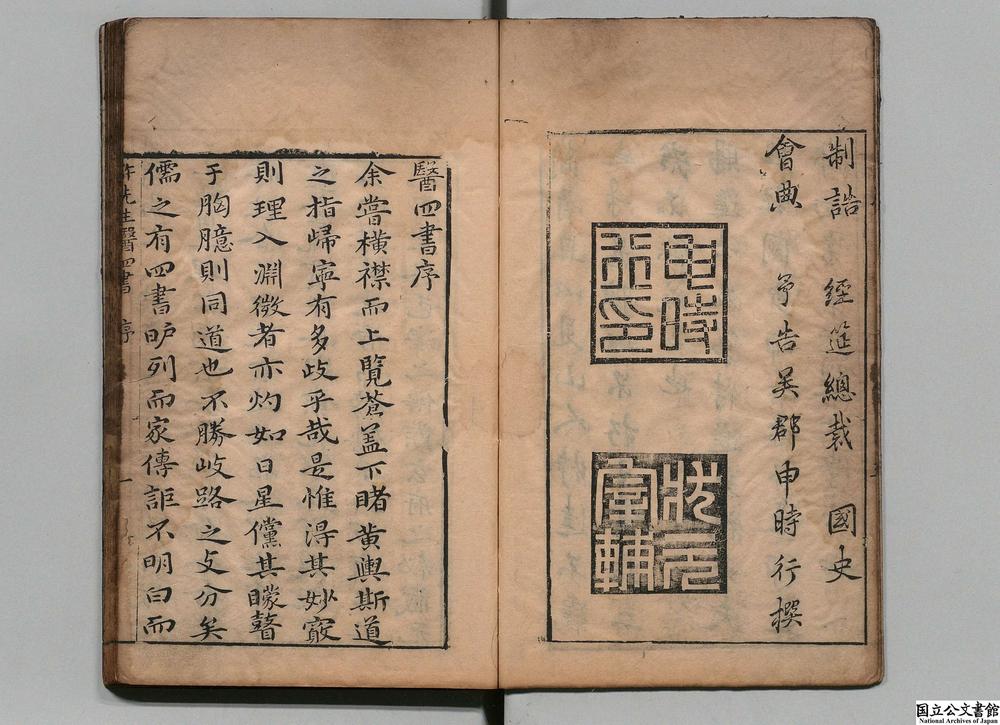 制誥 經筵總裁 國史
會典 予告吳郡申時行撰
申時
行印
狀元
宰輔
醫四書序
余嘗橫襟而上覽蒼盖下睹黄輿斯道
之指歸寧有多歧乎哉是惟得其妙竅
則理入淵微者亦灼如日星儻其矇瞽
于胸臆則同道也不勝岐路之分矣
儒之有四書昈列而家傳詎不明白而
許先生醫四書 序 一
国立公文書館
National Archives of Japan